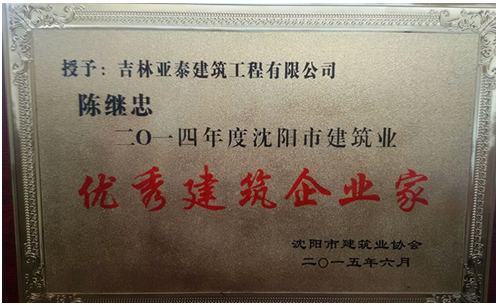 授予：吉林亚泰建筑工程有限公司
陈继忠
二〇一四年度沈阳市建筑业
优秀建筑企业家
沈阳市建筑业协会
二〇一五年六月